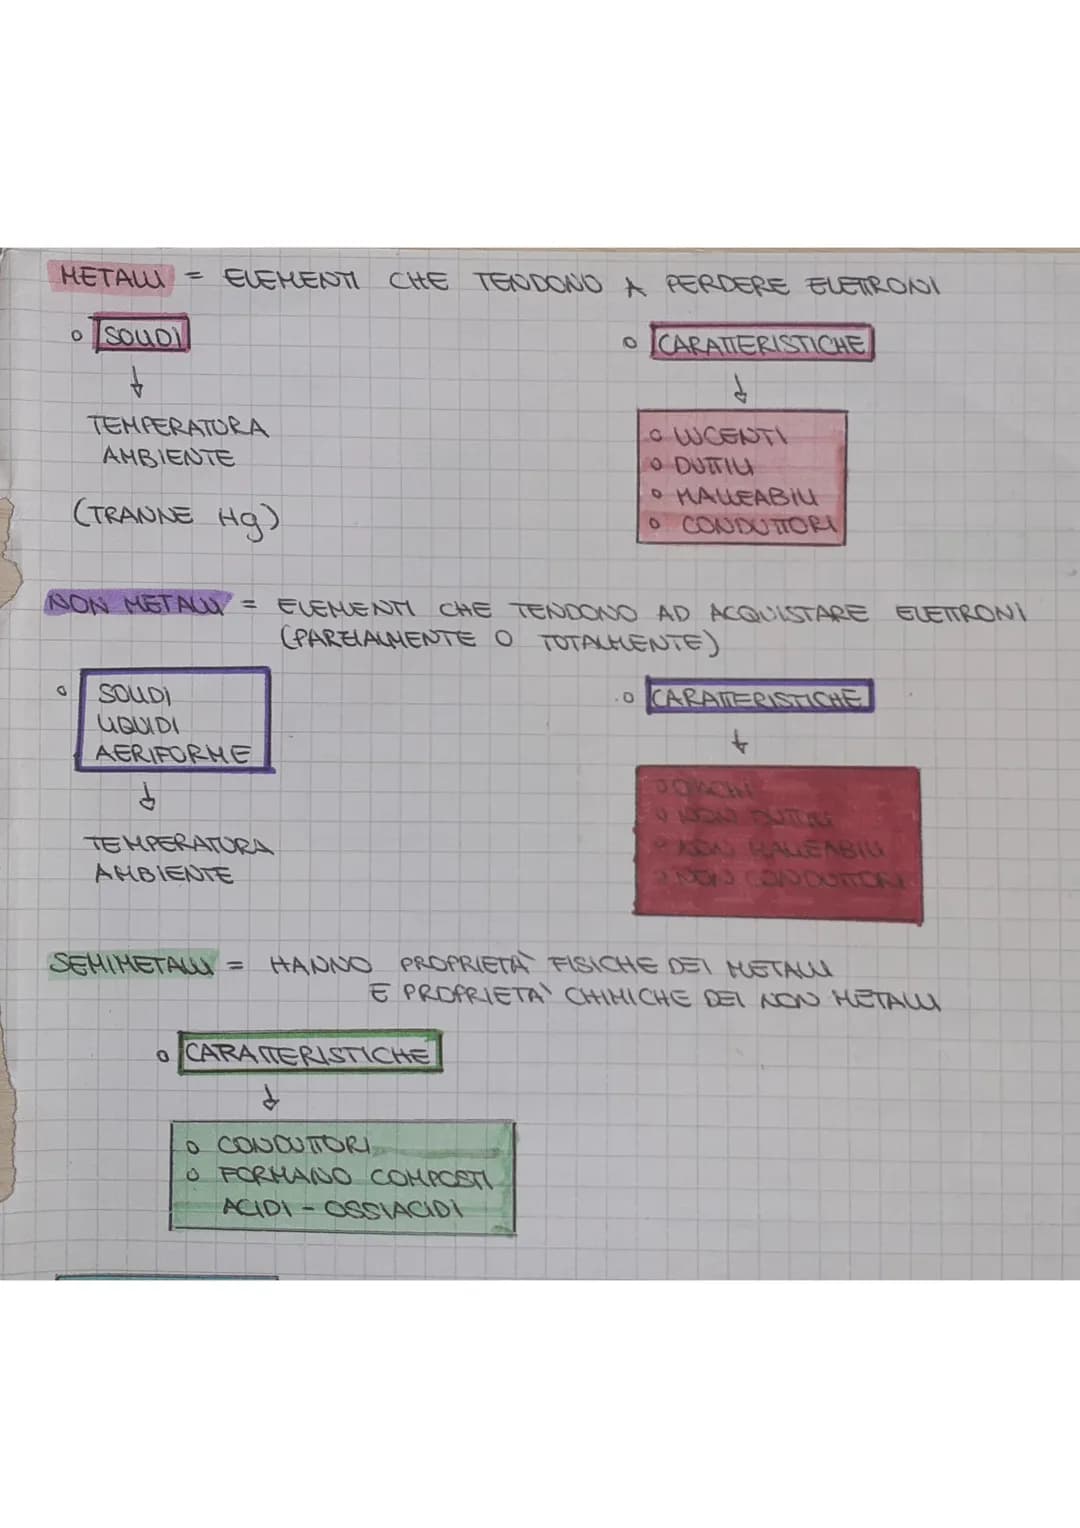 METALLI = ELEMENTI CHE TENDONO A PERDERE ELETTRONI
SOLIDI
CARATTERISTICHE
TEMPERATURA
AMBIENTE
(TRANNE Hg)
LUCENTI
DUTTILI
MALLEABILI
CONDUTTORI
NON METALLI = ELEMENTI CHE TENDONO AD ACQUISTARE ELETTRONI
(PARZIALMENTE O TOTALMENTE)
SOLIDI
LIQUIDI
AERIFORME
TEMPERATURA
AMBIENTE
CARATTERISTICHE
OPACHI
NON DUTTILI
NON MALLEABILI
NON CONDUTTORI
SEMIMETALLI = HANNO PROPRIETÀ FISICHE DEI METALLI
E PROPRIETA' CHIMICHE DEI NON METALLI
CARATTERISTICHE
CONDUTTORI
FORMANO COMPOSTI
ACIDI - OSSIACIDI